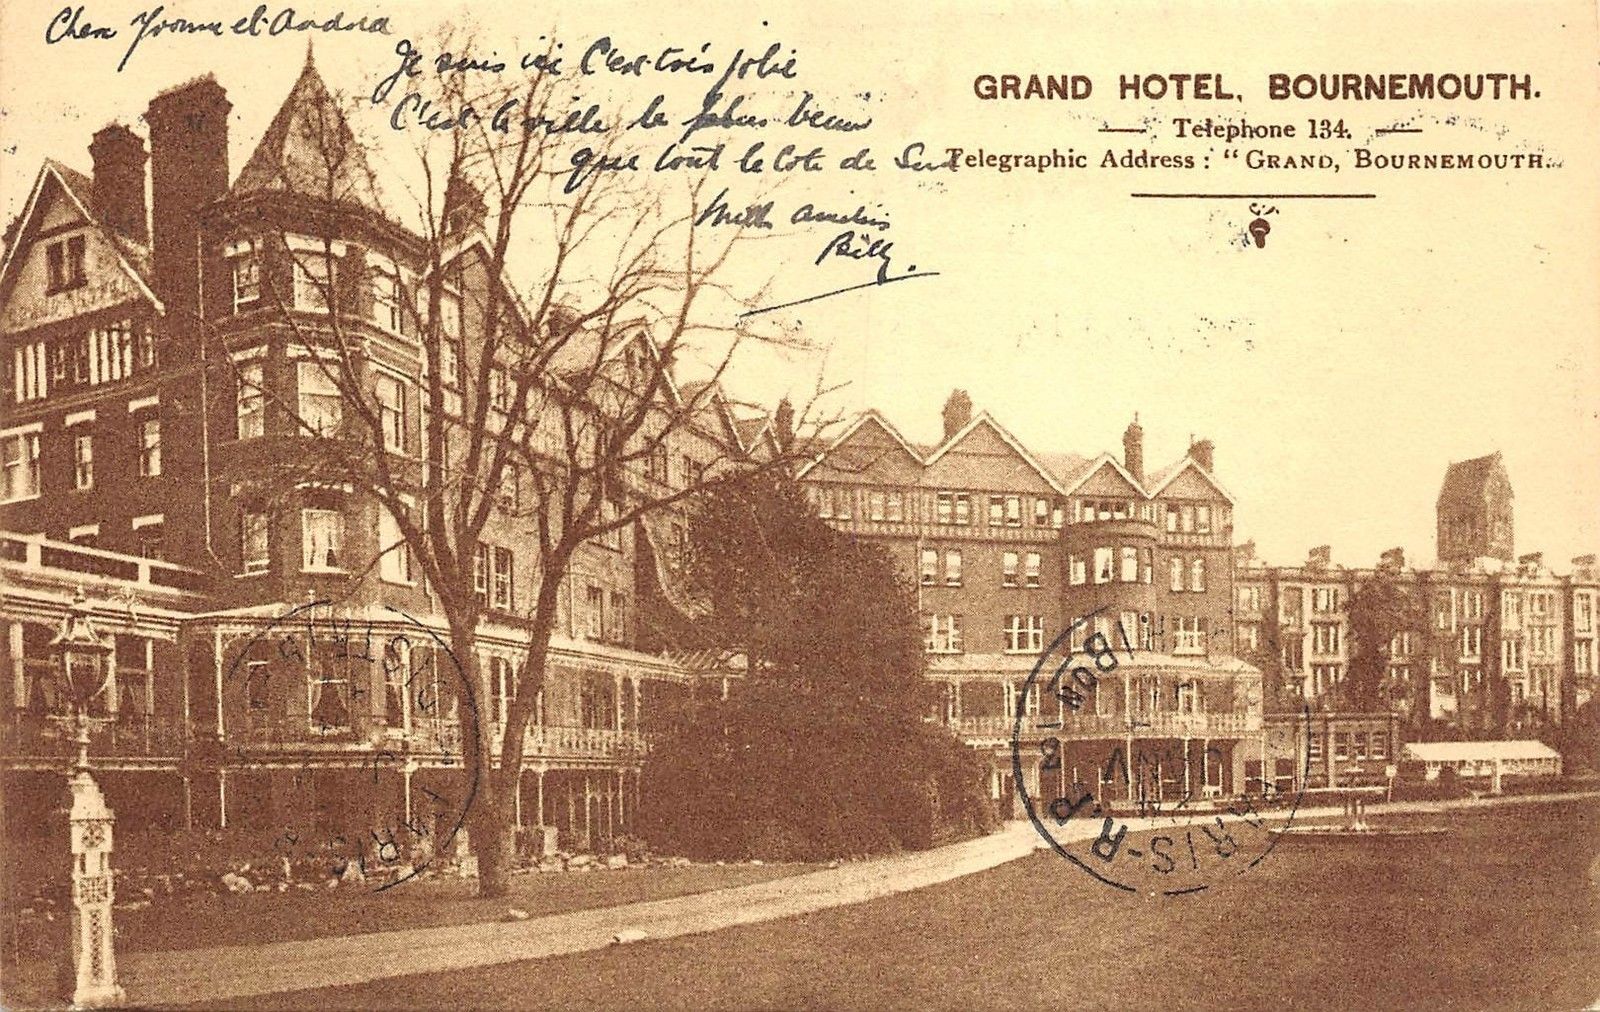 Cher Yvonne et Andrea
Je suis ici C'est très jolie
C'est la ville le plus beau
que tout le Cote de Sud
Mille amitiés
Billy.
GRAND HOTEL, BOURNEMOUTH.
Telephone 134.
Telegraphic Address: "GRAND, BOURNEMOUTH.
PARIS
DISTRIB
PARIS-R.P.